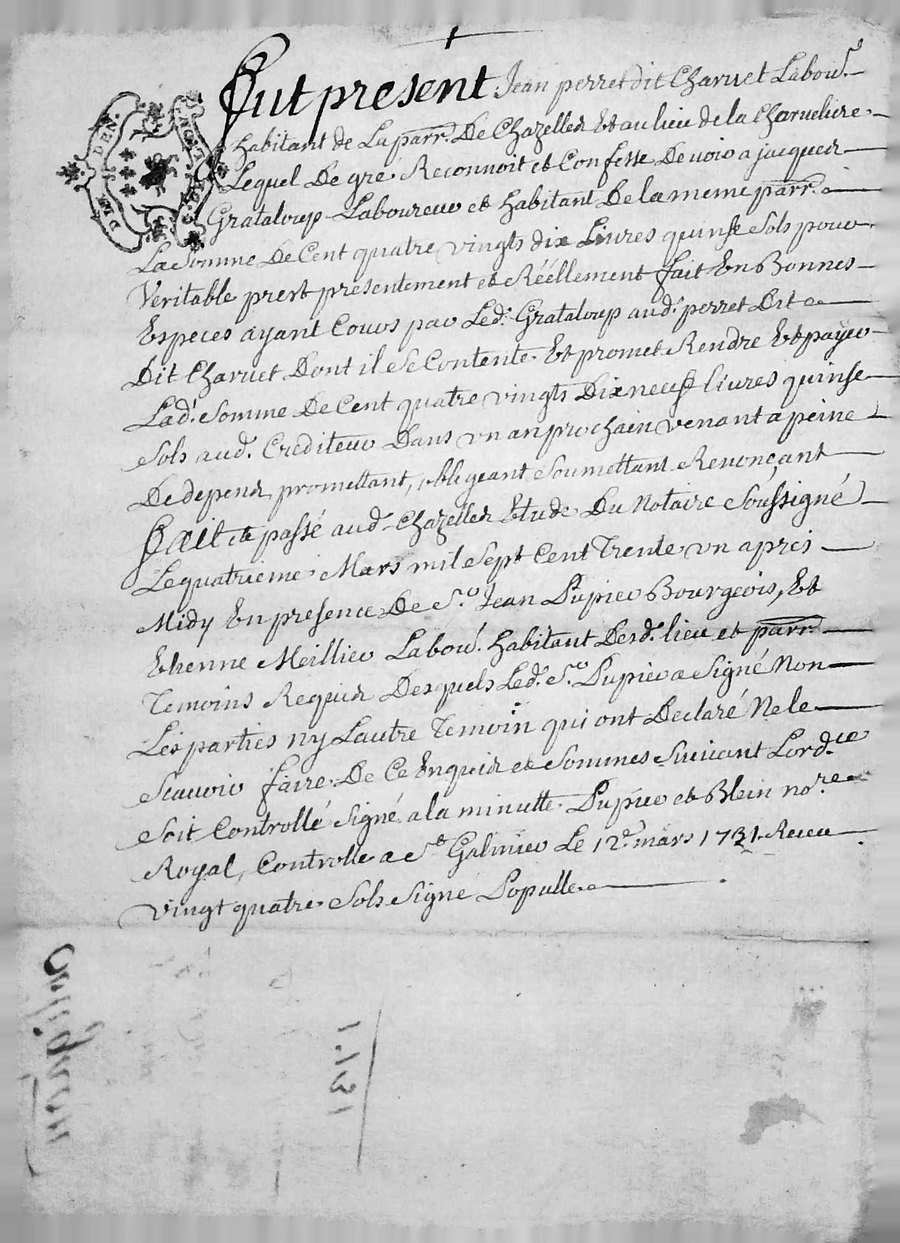 Fut present Jean perret dit Charuet Labou.r
habitant de La parr. De Chazelles Et au lieu de la Charueliere
Lequel De gré Reconnoit et Confesse Devoir a jacques
Grataloup Laboureur et habitant De la meme parr.
La Somme De Cent quatre vingts dix Livres quinse Sols pour
Veritable prest présentement et Réellement fait En Bonnes
Especes ayant Cours par Led. Grataloup aud. perret Dit
Dit Charuet Dont il Se Contente Et promet Rendre Et payer
Lad. Somme De Cent quatre vingts Dix neuf livres quinse
Sols aud. Crediteur Dans un an prochain venant a peine
De depens, promettant, obligeant Soumettant Renonçant
Fait et passé aud. Chazelles Etude Du Notaire Soussigné
Le quatrieme Mars mil Sept Cent Trente un apres
Midy En presence De S.r Jean Pupier Bourgeois, Et
Etienne Meillier Labou.r habitant Desd. lieu et parr.
Temoins Requis Desquels Led. S.r Pupier a Signé Non
Les parties ny Lautre Temoin qui ont Declaré Ne le
Scauoir faire De Ce Enquis et Sommes Suivant Lord.ce
Soit Controllé Signé a la minutte Pupier et Blein no.re
Royal, Controlle a S.t Galmier Le 12.e mars 1731 Receu
vingt quatre Sols Signé Populle
1731